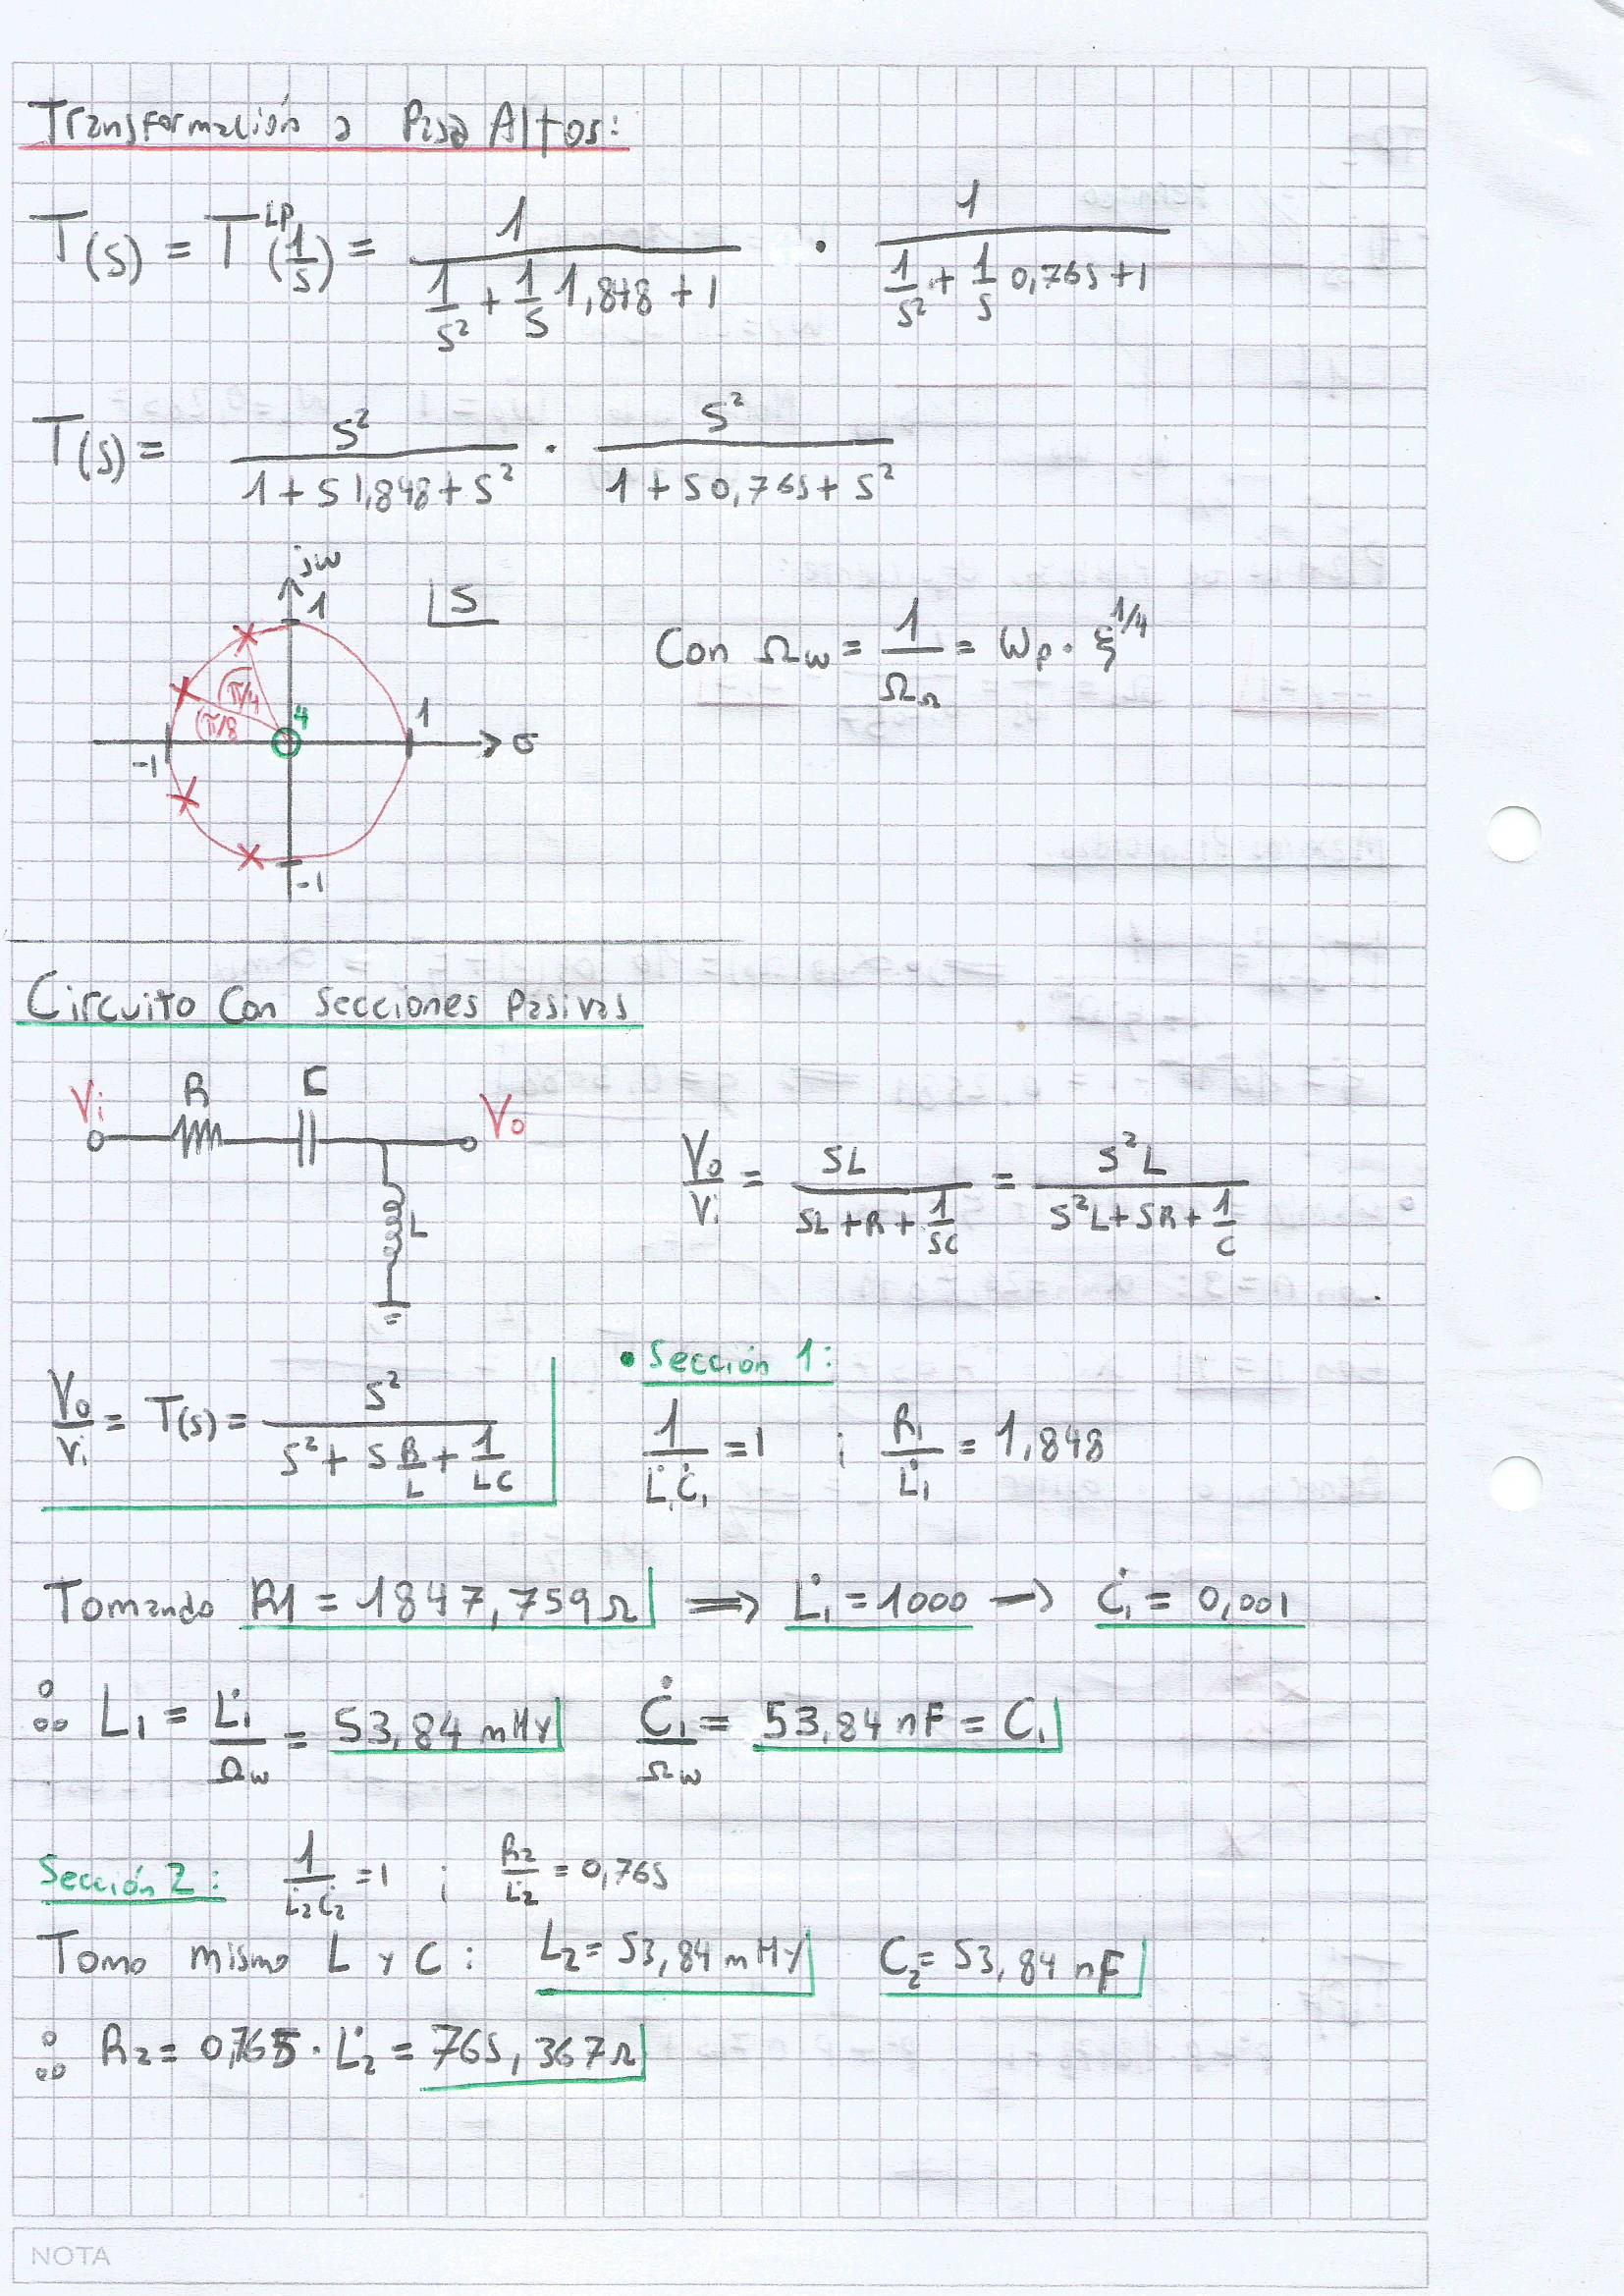 Transformación a Pasa Altos:
T(s) = T^LP(1/s) = 1 / (1/s² + 1/s 1,848 + 1) · 1 / (1/s² + 1/s 0,765 + 1)
T(s) = s² / (1 + s 1,848 + s²) · s² / (1 + s 0,765 + s²)
jw
1
S
Con Ωw = 1/ΩΩ = Wp · ξ^1/4
π/4
π/8
4
1
σ
-1
-1
Circuito Con Secciones Pasivas
Vi R C Vo
L
Vo/Vi = SL / (SL + R + 1/SC) = S²L / (S²L + SR + 1/C)
• Sección 1:
Vo/Vi = T(s) = s² / (s² + s R/L + 1/LC)
1/(L̇₁Ċ₁) = 1 ; R₁/L̇₁ = 1,848
Tomando R1 = 1847,759Ω ⟹ L̇₁ = 1000 → Ċ₁ = 0,001
∴ L₁ = L̇₁/Ωw = 53,84 mHy Ċ₁/Ωw = 53,84 nF = C₁
Sección 2: 1/(L̇₂Ċ₂) = 1 ; R₂/L̇₂ = 0,765
Tomo mismo L y C: L₂ = 53,84 mHy C₂ = 53,84 nF
∴ R₂ = 0,765 · L̇₂ = 765,367Ω
NOTA